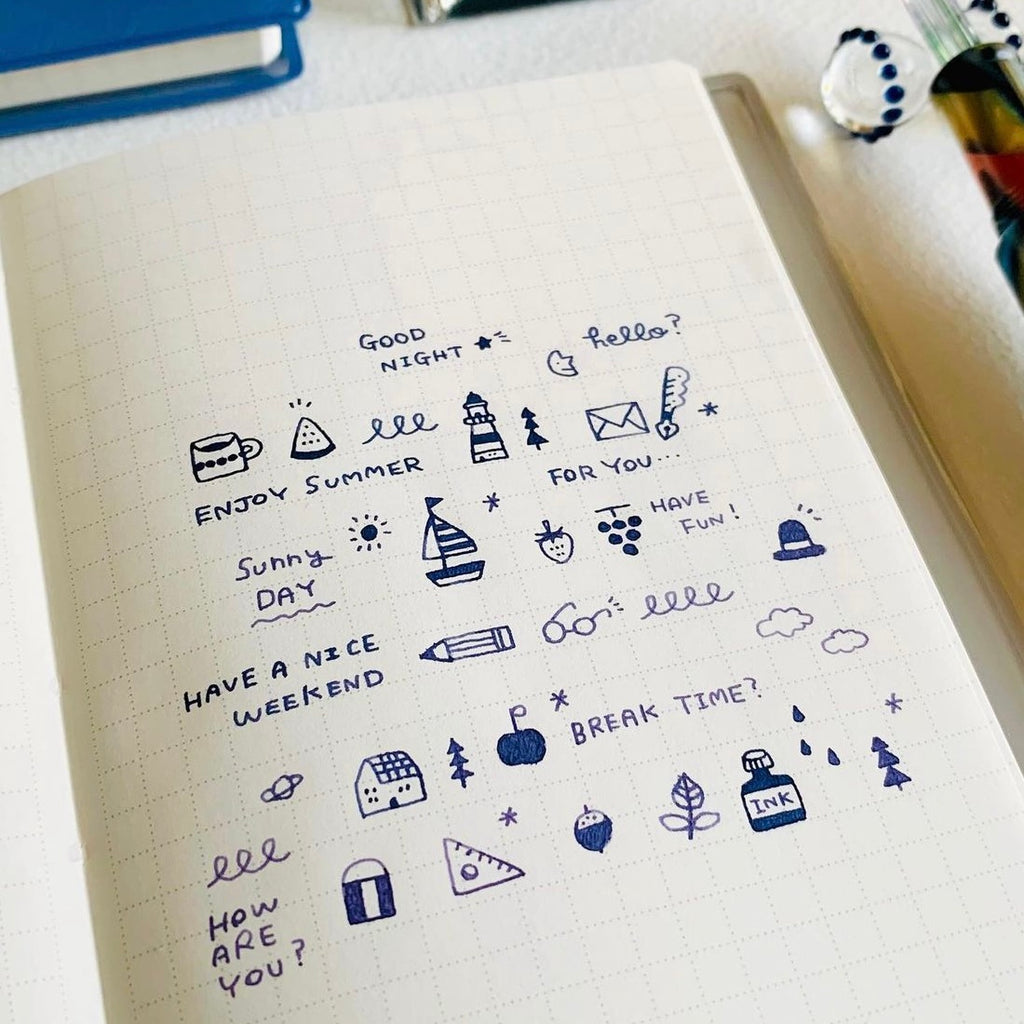 GOOD
NIGHT
hello?
ENJOY SUMMER
FOR YOU...
HAVE
FUN!
Sunny
DAY
HAVE A NICE
WEEKEND
BREAK TIME?
INK
HOW
ARE
YOU?